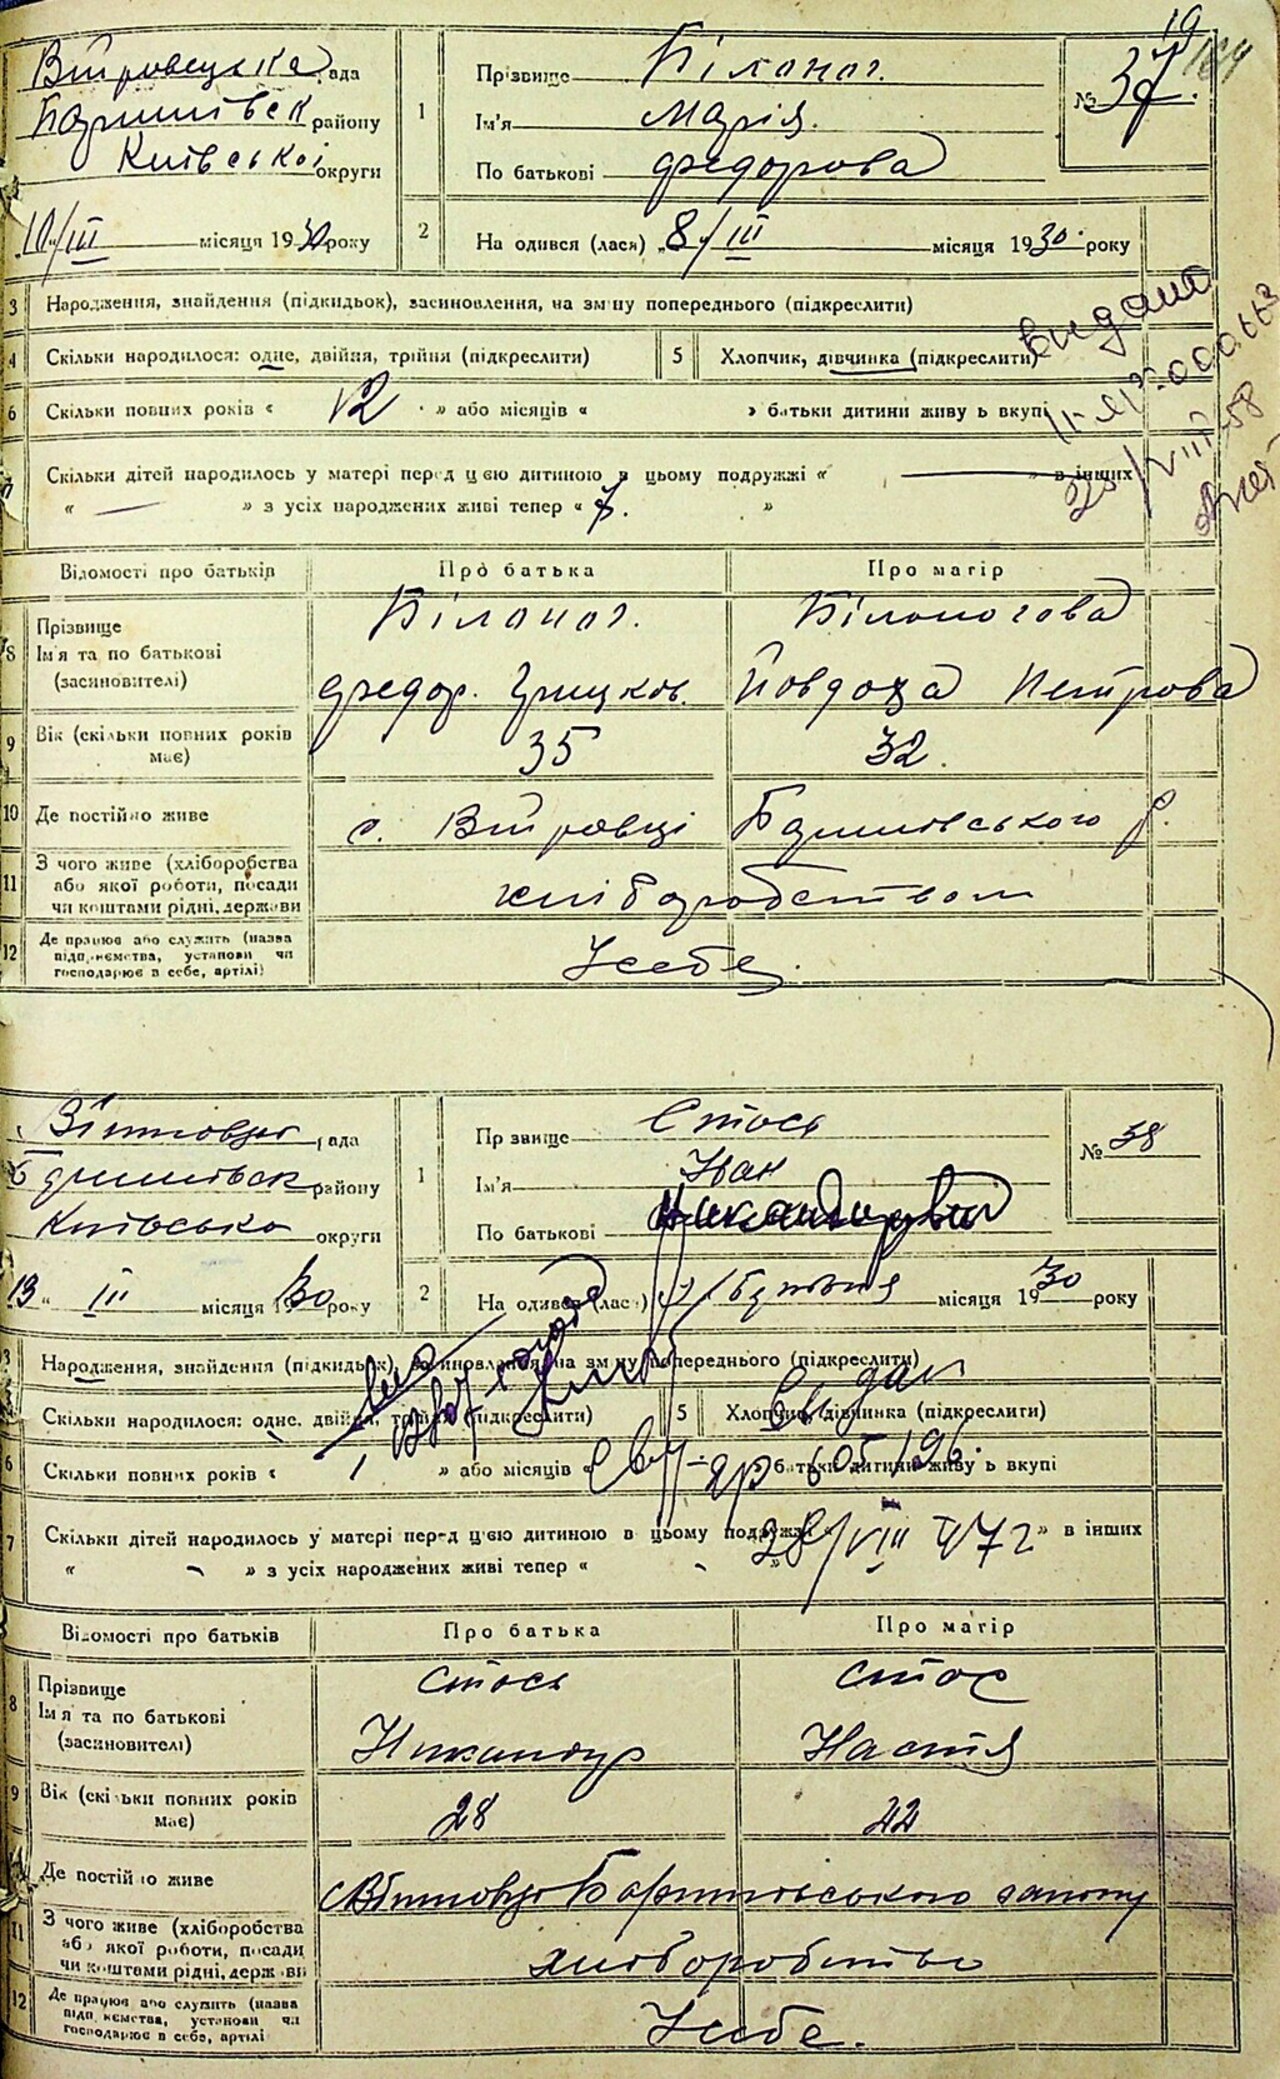 19
164
Вітровецька рада
Баришівськ району
Київської округи
10/III місяця 1930 року
1
Прізвище Білоног.
Ім'я Марія.
По батькові Федорова
№ 37.
2
На одився (лася) „8/III місяця 1930. року
3 Народження, знайдення (підкидьок), засиновлення, на зм ну попереднього (підкреслити)
4 Скільки народилося: одне, двійня, трійня (підкреслити)
5 Хлопчик, дівчинка (підкреслити)
видано
6 Скільки повних років « 12 » або місяців « » батьки дитини живу ь вкупі
7 Скільки дітей народилось у матері перед цєю дитиною в цьому подружжі « — » в інших
« — » з усіх народжених живі тепер « 7. »
Відомості про батьків
Про батька
Про матір
8 Прізвище
Ім'я та по батькові
(засиновителі)
Білоног.
Білоногова
Федор. Грицков.
Йовдоха Петрова
9 Вік (скільки повних років має)
35
32.
10 Де постійно живе
с. Вітровці Баришівського р.
11 З чого живе (хліборобства або якої роботи, посади чи коштами рідні, держави
хліборобством
12 Де працює або служить (назва підприємства, установи чи господарює в себе, артілі)
У себе.
рада
Баришівськ району
Київсько округи
13 „ III місяця 1930 року
1
Пр звище Стось
Ім'я Іван
По батькові Никандрович
№ 38
2
На одився (лас ) березня місяця 1930 року
3 Народження, знайдення (підкидьок), засиновлення, на зм ну попереднього (підкреслити)
Скільки народилося: одне, двійня, трійня (підкреслити)
5 Хлопчик, дівчинка (підкреслити)
6 Скільки повних років « 1 » або місяців « » батьки дитини живу ь вкупі
7 Скільки дітей народилось у матері перед цєю дитиною в цьому подружжі « » в інших
28/VIII 47 г
« - » з усіх народжених живі тепер « - »
Відомості про батьків
Про батька
Про матір
8 Прізвище
Ім'я та по батькові
(засиновителі)
Стось
Стос
Никандр
Настя
9 Вік (скільки повних років має)
28
22
Де постійно живе
Баришівського
11 З чого живе (хліборобства або якої роботи, посади чи коштами рідні, держави
хліборобство
12 Де працює або служить (назва підприємства, установи чи господарює в себе, артілі
У себе.